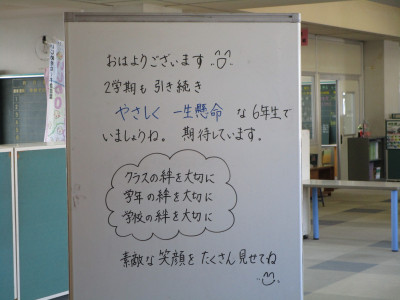 おはようございます
2学期も引き続き
やさしく 一生懸命 な6年生で
いましょうね。期待しています。
クラスの絆を大切に
学年の絆を大切に
学校の絆を大切に
素敵な笑顔をたくさん見せてね